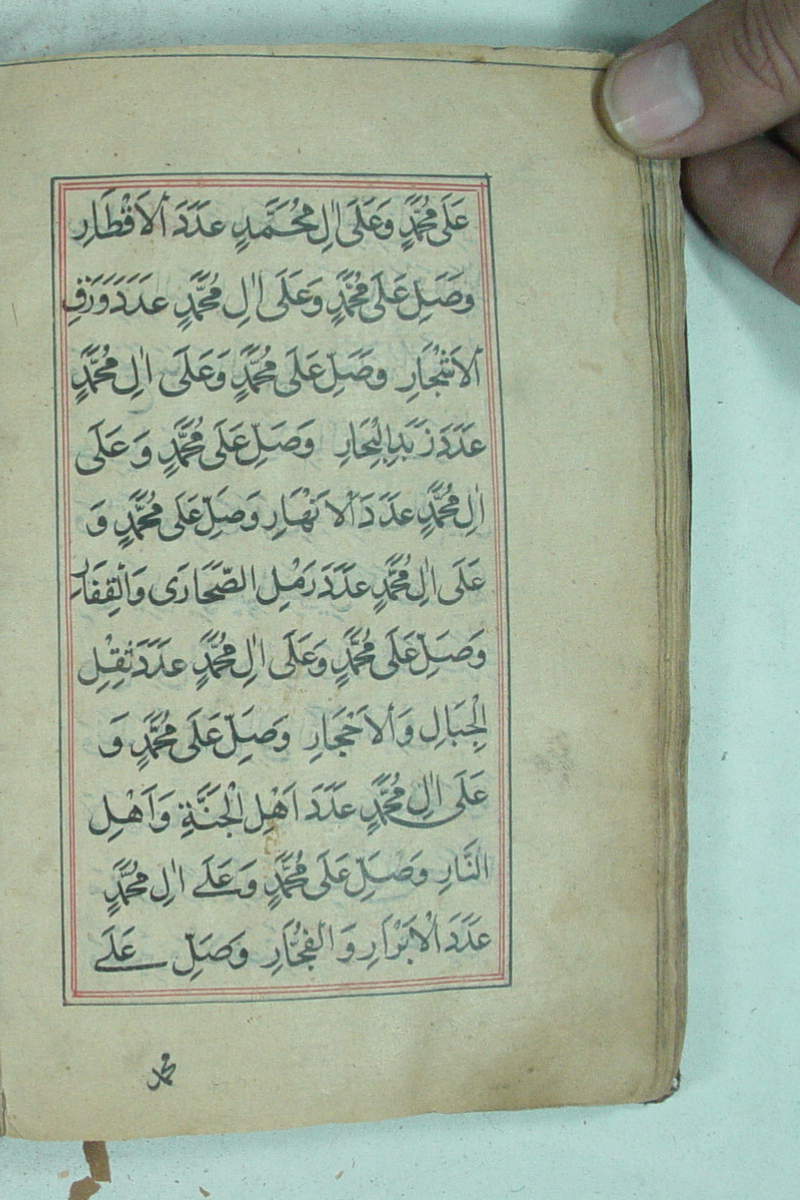 عَلَى مُحَمَّدٍ وَعَلَى اٰلِ مُحَمَّدٍ عَدَدَ الْاَقْطَارِ
وَصَلِّ عَلَى مُحَمَّدٍ وَعَلَى اٰلِ مُحَمَّدٍ عَدَدَ وَرَقِ
الْاَشْجَارِ وَصَلِّ عَلَى مُحَمَّدٍ وَعَلَى اٰلِ مُحَمَّدٍ
عَدَدَ زَبَدِ الْبِحَارِ وَصَلِّ عَلَى مُحَمَّدٍ وَ عَلَى
اٰلِ مُحَمَّدٍ عَدَدَ الْاَنْهَارِ وَصَلِّ عَلَى مُحَمَّدٍ وَ
عَلَى اٰلِ مُحَمَّدٍ عَدَدَ رَمْلِ الصَّحَارَى وَالْقِفَارِ
وَصَلِّ عَلَى مُحَمَّدٍ وَعَلَى اٰلِ مُحَمَّدٍ عَدَدَ ثِقْلِ
الْجِبَالِ وَالْاَحْجَارِ وَصَلِّ عَلَى مُحَمَّدٍ وَ
عَلَى اٰلِ مُحَمَّدٍ عَدَدَ اَهْلِ الْجَنَّةِ وَاَهْلِ
النَّارِ وَصَلِّ عَلَى مُحَمَّدٍ وَعَلَے اٰلِ مُحَمَّدٍ
عَدَدَ الْاَبْرَارِ وَالْفُجَّارِ وَصَلِّ عَلَے
محمد